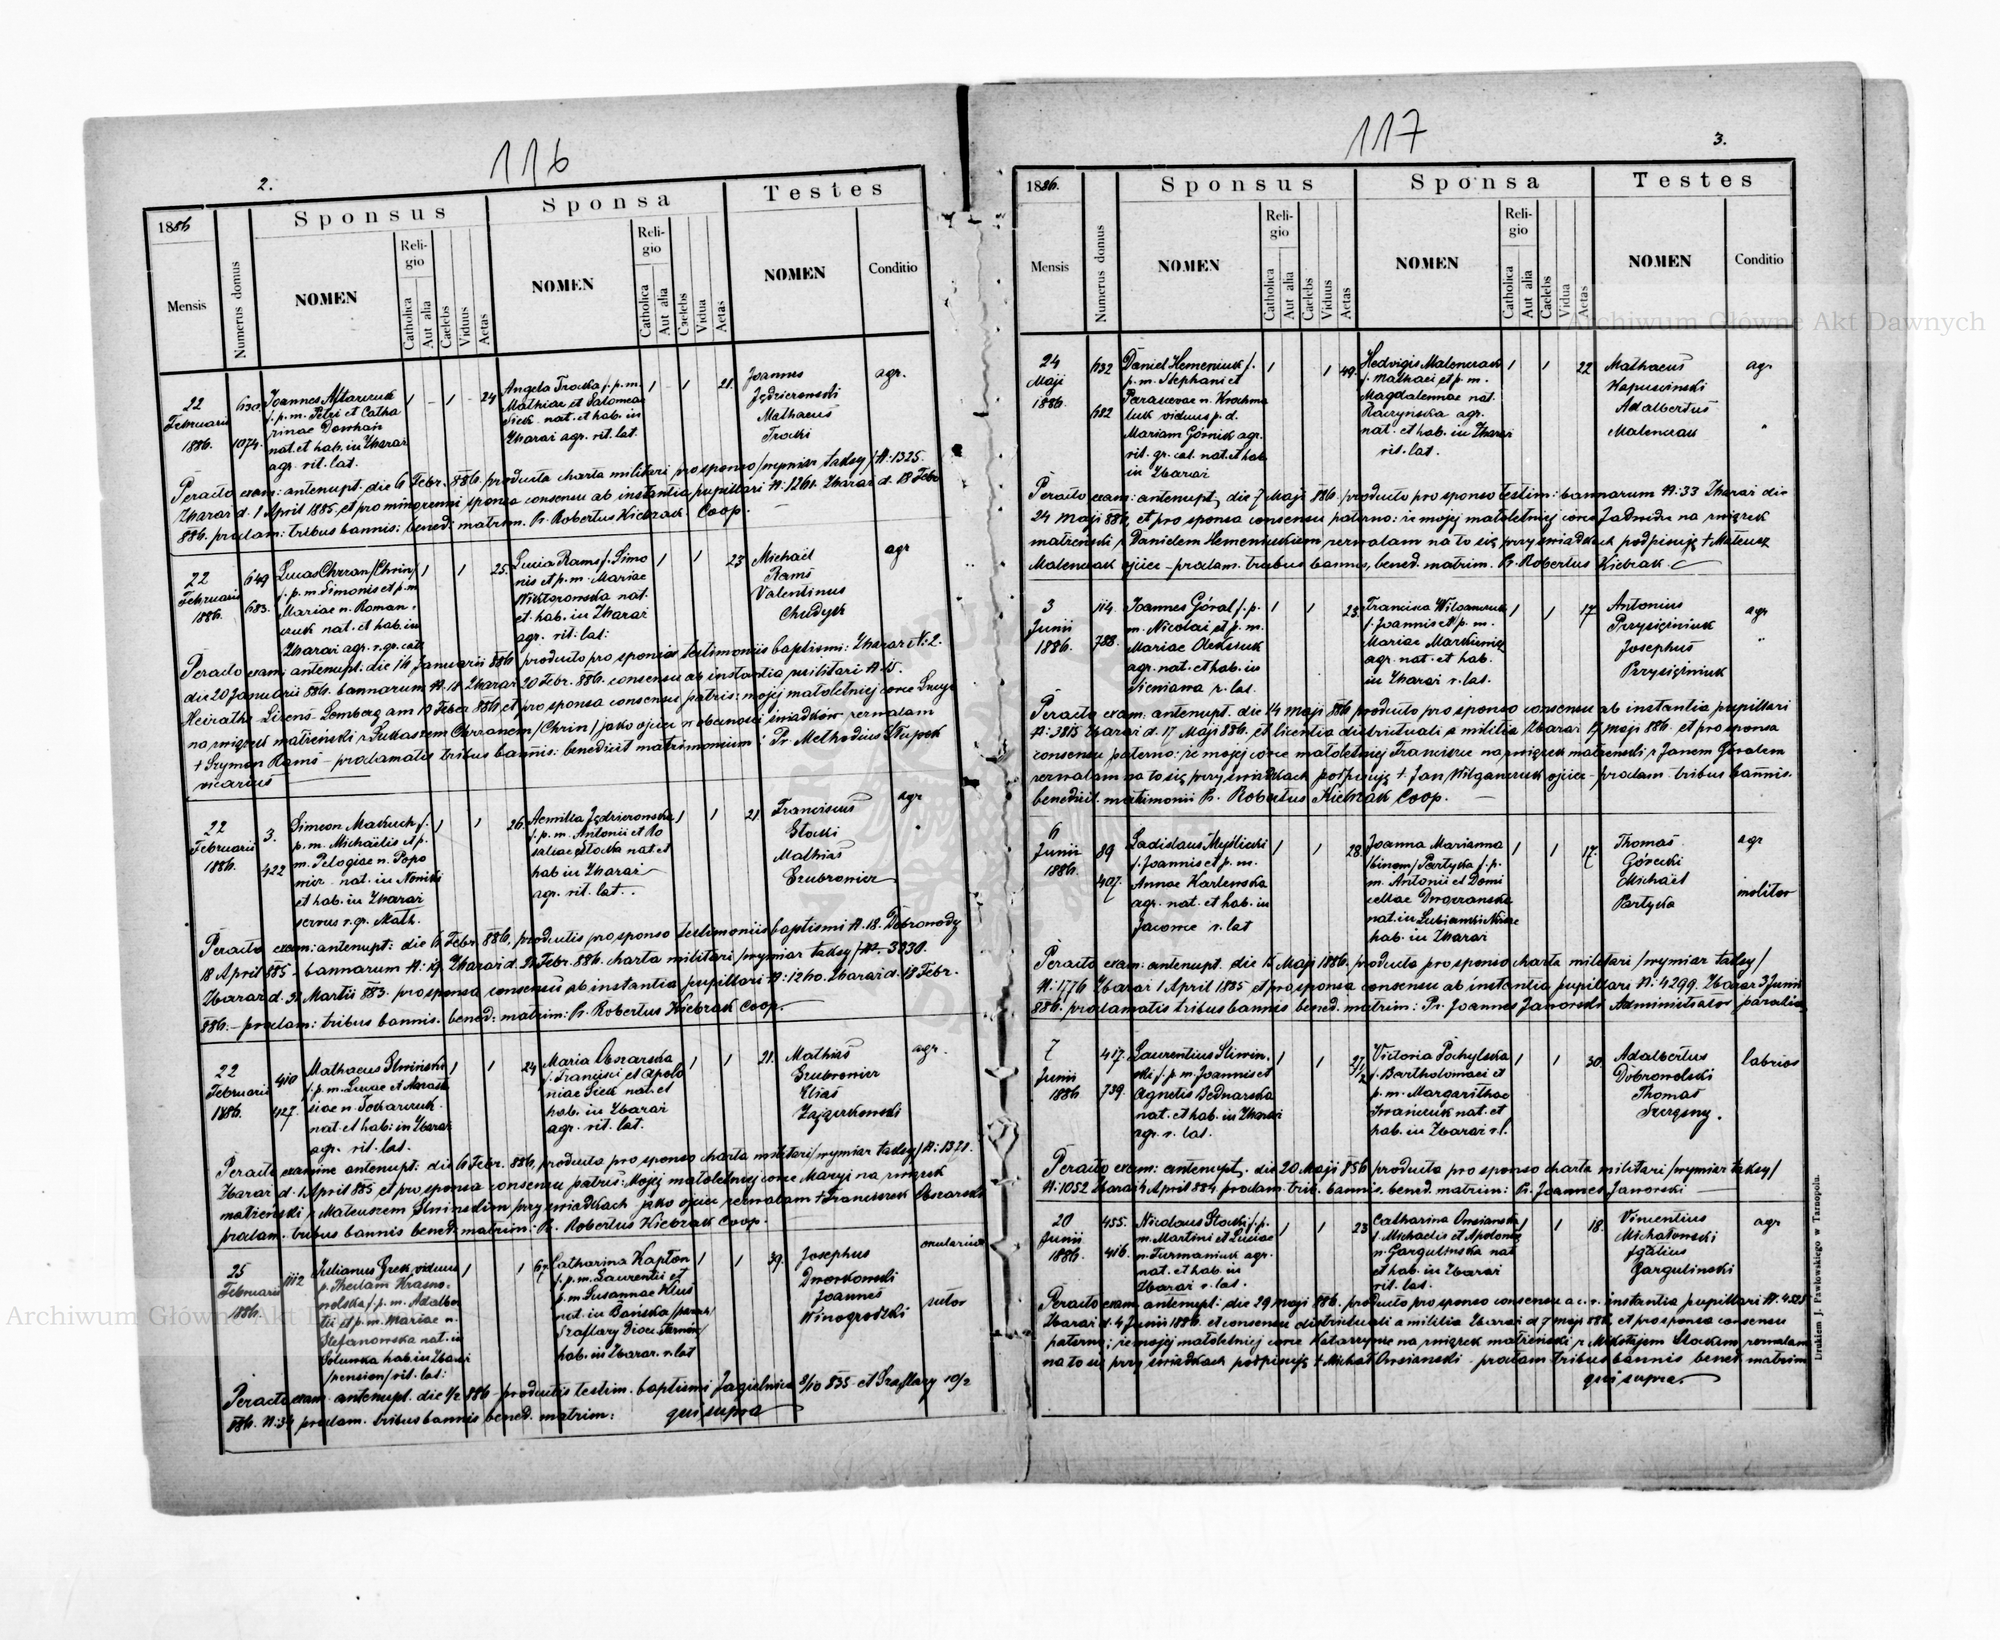 116
2.
1886
Sponsus
Sponsa
Testes
Mensis
Numerus domus
NOMEN
Religio
Catholica
Aut alia
Caelebs
Viduus
Aetas
NOMEN
Religio
Catholica
Aut alia
Caelebs
Vidua
Aetas
NOMEN
Conditio
22 Februarii 1886.
630.
1074.
Joannes
f. p. m. Petri et Catha
rinae
nat. et hab. in Zbaraż
agr. rit. lat.
24
Angela Trocka f. p. m.
Mathiae et Salomeae
Sick nat. et hab. in
Zbaraż agr. rit. lat.
21.
Joannes
Jędzierowski
Mathaeus
Trocki
agr.
Peracto exam: antenupt. die 6 Febr. 886. producta charta militari pro sponso /wymiar taksy/ N: 1325.
Zbaraż d. 1 April 1885. et pro minorenni sponsa consensu ab instantia pupillari N: 1261. Zbaraż d. 18 Febr.
886. proclam: tribus bannis: bened: matrim. Pr. Robertus Kiebzak Coop.
22 Februarii 1886.
649
683.
Lucas Chrzan /Chrin/
f. p. m. Simonis et p. m.
Mariae n. Roman
czuk nat. et hab. in
Zbaraż agr. r. gr. cath
25.
Lucia Rams f. Simo
nis et p. m. Mariae
Wiktorowska nat.
et hab. in Zbaraż
agr. rit: lat:
23
Michael
Rams
Valentinus
Chudyk
agr
Peracto exam: antenupt. die 14 Januarii 886 producto pro sponso testimoniis baptismi: Zbaraż N: 2.
die 20 Januarii 886. bannarum N. 18 Zbaraż 20 Febr. 886. consensu ab instantia militari N. 15.
Heiraths-Lizens-Lemberg am 10 Feber 886 et pro sponsa consensu patris: mojej małoletniej córce Łucyi
na związek małżeński z Łukaszem Chrzanem /Chrin/ jako ojciec w obecności świadków zezwalam
+ Szymon Rams – proclamatis tribus bannis: benedixit matrimonium: Pr. Methodius Słupek
vicarius
22 Februarii 1886.
3.
422
Simeon Makuch f.
p. m. Michaëlis et p.
m. Pelagiae n. Popo
wicz nat. in
et hab. in Zbaraż
servus r. gr. Kath.
26.
Aemilia Jędzierowska
f. p. m. Antonii et Ro
saliae Stocka nat et
hab in Zbaraż
agr. rit. lat.
21
Franciscus
Stocki
Mathias
Czubrowicz
agr
Peracto exam: antenupt: die 6 Febr. 886. productis pro sponso testimoniis baptismi N. 18. Dobrowody
18 April 885 – bannarum N: 19. Zbaraż d. 21 Febr. 886. charta militari /wymiar taksy/ N: 3930.
Zbaraż d. 31 Martii 883. pro sponsa consensu ab instantia pupillari N: 1260. Zbaraż d. 18 Febr.
886. – proclam: tribus bannis. bened: matrim: Pr. Robertus Kiebzak Coop.
22 Februarii 1886.
410
427.
Mathaeus Śliwiński
f. p. m. Lucae et Anasta
siae n. Tokarczuk
nat. et hab: in Zbaraż
agr. rit. lat.
24
Maria Obszarska
f. Francisci et Apolo
niae Sieck nat. et
hab. in Zbaraż
agr. rit. lat.
21.
Mathias
Czubrowicz
Elias
Zajączkowski
agr.
Peracto examine antenupt: die 6 Febr. 886. producta pro sponso charta militari /wymiar taksy/ N: 1321.
Zbaraż d. 1 April 885 et pro sponsa consensu patris: Mojej małoletniej córce Maryi na związek
małżeński z Mateuszem Śliwińskim przy świadkach jako ojciec zezwalam + Franciszek Obszarski
proclam. tribus bannis bened: matrim: Pr. Robertus Kiebzak Coop.
25 Februarii 1886.
1112
Julianus Grek, viduus
p. Theclam Krasno
wolska f. p. m. Adalber
ti et p. m. Mariae n.
Stefanowska nat. in
hab. in Zbaraż
/pension/ rit. lat:
67.
Catharina Kapton
f. p. m. Laurentii et
p. m. Susannae Kluś
nat. in Bańska /paroch/
Szaflary Dioec. Tarnów/
hab. in Zbaraż. r. lat
39.
Josephus
Dworkowski
Joannes
Winogrodzki
sutor
Peracto exam. antenupt. die 1/2 886. productis testim. baptismi Jagielnica 2/10 835 et Szaflary 10/2
886. N: 34 proclam. tribus bannis bened. matrim: qui supra
117
3.
1886.
Sponsus
Sponsa
Testes
Mensis
Numerus domus
NOMEN
Religio
Catholica
Aut alia
Caelebs
Viduus
Aetas
NOMEN
Religio
Catholica
Aut alia
Caelebs
Vidua
Aetas
NOMEN
Conditio
24 Maji 1886.
632
682
Daniel Hemeniuk f.
p. m. Stephani et
Parascevae n. Krochma
luk viduus p. d.
Mariam Górnik agr.
rit. gr. cat. nat. et hab.
in Zbaraż
49.
Hedvigis Malenczak
f. Mathaei et p. m.
Magdalennae nat.
Raczyńska agr.
nat. et hab. in Zbaraż
rit. lat.
22
Mathaeus
Kapuściński
Adalbertus
Malenczak
agr
Peracto exam: antenupt. die 7 Maji 886. producto pro sponso testim: bannarum N: 33 Zbaraż die
24 maji 886, et pro sponsa consensu paterno: że mojej małoletniej córce Jadwidze na związek
małżeński z Danielem Hemeniukiem zezwalam na to się przy świadkach podpisuję + Mateusz
Malenczak ojciec – proclam. tribus bannis, bened. matrim. Pr. Robertus Kiebzak
3 Junii 1886.
114.
788.
Joannes Góral f. p.
m. Nicolai et p. m.
Mariae Oleksiuk
agr. nat. et hab. in
Sieniawa r. lat.
23
Francisca Wilganczuk
f. Joannis et p. m.
Mariae Markiewicz
agr. nat. et hab.
in Zbaraż r. lat.
17
Antonius
Przysiężniuk
Josephus
Przysiężniuk
agr
Peracto exam: antenupt. die 14 maji 886 producto pro sponso consensu ab instantia pupillari
N: 3815 Zbaraż d. 17 Maji 886. et licentia districtuali a militia Zbaraż 17 maji 886. et pro sponsa
consensu paterno: że mojej córce małoletniej Franciszce na związek małżeński z Janem Góralem
zezwalam na to się przy świadkach podpisuję + Jan Wilganczuk ojciec – proclam. tribus bannis.
benedixit matrimonii Pr. Robertus Kiebzak Coop.
6 Junii 1886.
89
407.
Ladislaus Myślicki
f. Joannis et p. m.
Annae Karlewska
agr. nat. et hab. in
r. lat
28.
Joanna Marianna
/binom/ Partyka f. p.
m. Antonii et Domi
cellae
nat. in Lubianki Niższe
hab. in Zbaraż
17.
Thomas
Górecki
Michael
Partyka
agr
molitor
Peracto exam: antenupt. die 15 Maji 1886. producta pro sponso charta militari /wymiar taksy/
N: 1776 Zbaraż 1 April 1885 et pro sponsa consensu ab instantia pupillari N: 4299. Zbaraż 3 Junii
886. proclamatis tribus bannis bened. matrim: Pr. Joannes Janowski Administrator parochiae
7 Junii 1886
417.
739.
Laurentius Śliwin
ski f. p. m. Joannis et
Agnetis Bednarska
nat. et hab. in Zbaraż
agr. r. lat.
27 1/2
Victoria Pochylska
f. Bartholomaei et
p. m. Margarithae
Iwańczuk nat. et
hab. in Zbaraż r. l.
30.
Adalbertus
Dobrowolski
Thomas
labrios
Peracto exam: antenupt. die 20 Maji 886 producta pro sponso charta militari /wymiar taksy/
N: 1052 Zbaraż 4 April 884 proclam. trib. bannis. bened. matrim: Pr. Joannes Janowski
20 Junii 1886.
455.
416.
Nicolaus Stocki f. p.
m. Martini et Luciae
n. Furmaniuk agr.
nat. et hab. in
Zbaraż r. lat.
23
Catharina Owsianska
f. Michaelis et Apolonia
n. Gargulinska nat
et hab. in Zbaraż
rit. lat.
18.
Vincentius
Michałowski
Ignatius
Gargulinski
agr
Peracto exam. antenupt. die 29 maji 886. producto pro sponso consensu a c. r. instantia pupillari N. 4325
Zbaraż d. 4 Junii 1886. et consensu districtuali a militia Zbaraż d 7 maji 886. et pro sponsa consensu
paterno; że mojej małoletniej córce Katarzynie na związek małżeński z Mikołajem Stockim zezwalam
na to się przy świadkach podpisuję + Michał Owsianski – proclam tribus bannis bened. matrim
qui supra.
Drukiem J. Pawłowskiego w Tarnopolu.
Archiwum Główne Akt Dawnych
Archiwum Główne Akt Dawnych